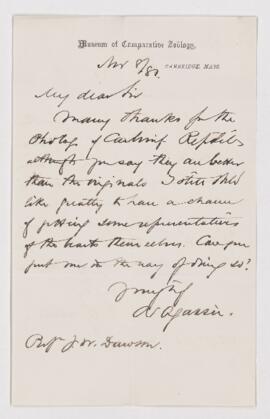 Museum of Comparative Zoölogy,
CAMBRIDGE, MASS.
Nov 8/82
My dear Sir
Many thanks for the
Photog of Carbonif Reptiles
although you say they are better
than the originals I still should
like greatly to have a chance
of getting some representatives
of the beasts themselves. Can you
put me in the way of doing so?
Yours truly
A Agassiz.
Prof J. W. Dawson.